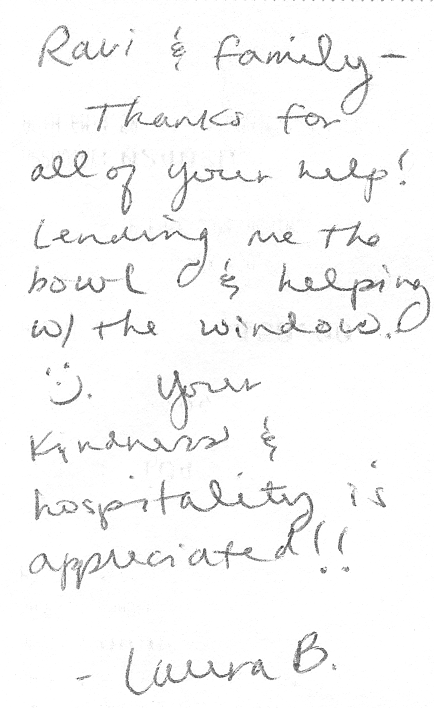 Ravi & family –
Thanks for
all of your help!
Lending me the
bowl & helping
w/ the window.
:). Your
kindness &
hospitality is
appreciated!!
- Laura B.